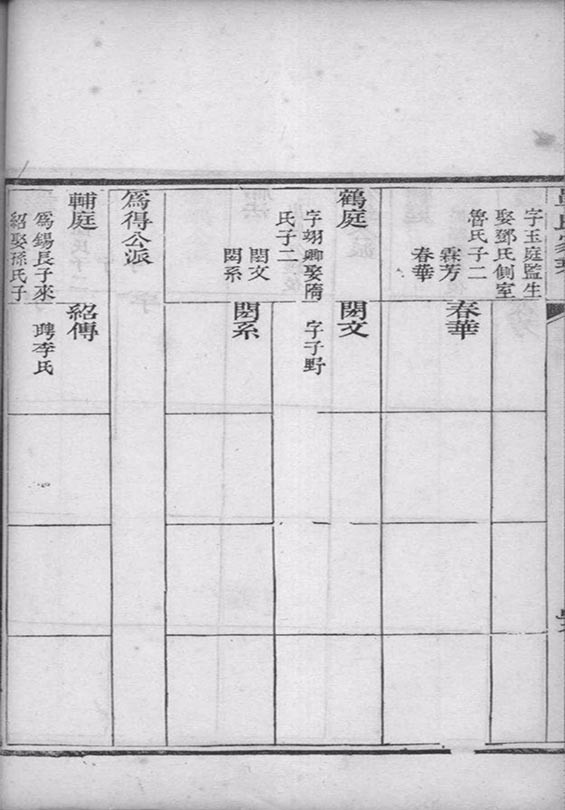 字玉庭監生
娶鄧氏側室
魯氏子二
霖芳
春華
春華
鶴庭
字翊卿娶隋
氏子二
閎文
閎系
閎文
字子野
閎系
爲得公派
輔庭
爲錫長子來
紹娶孫氏子
紹傳
聘李氏